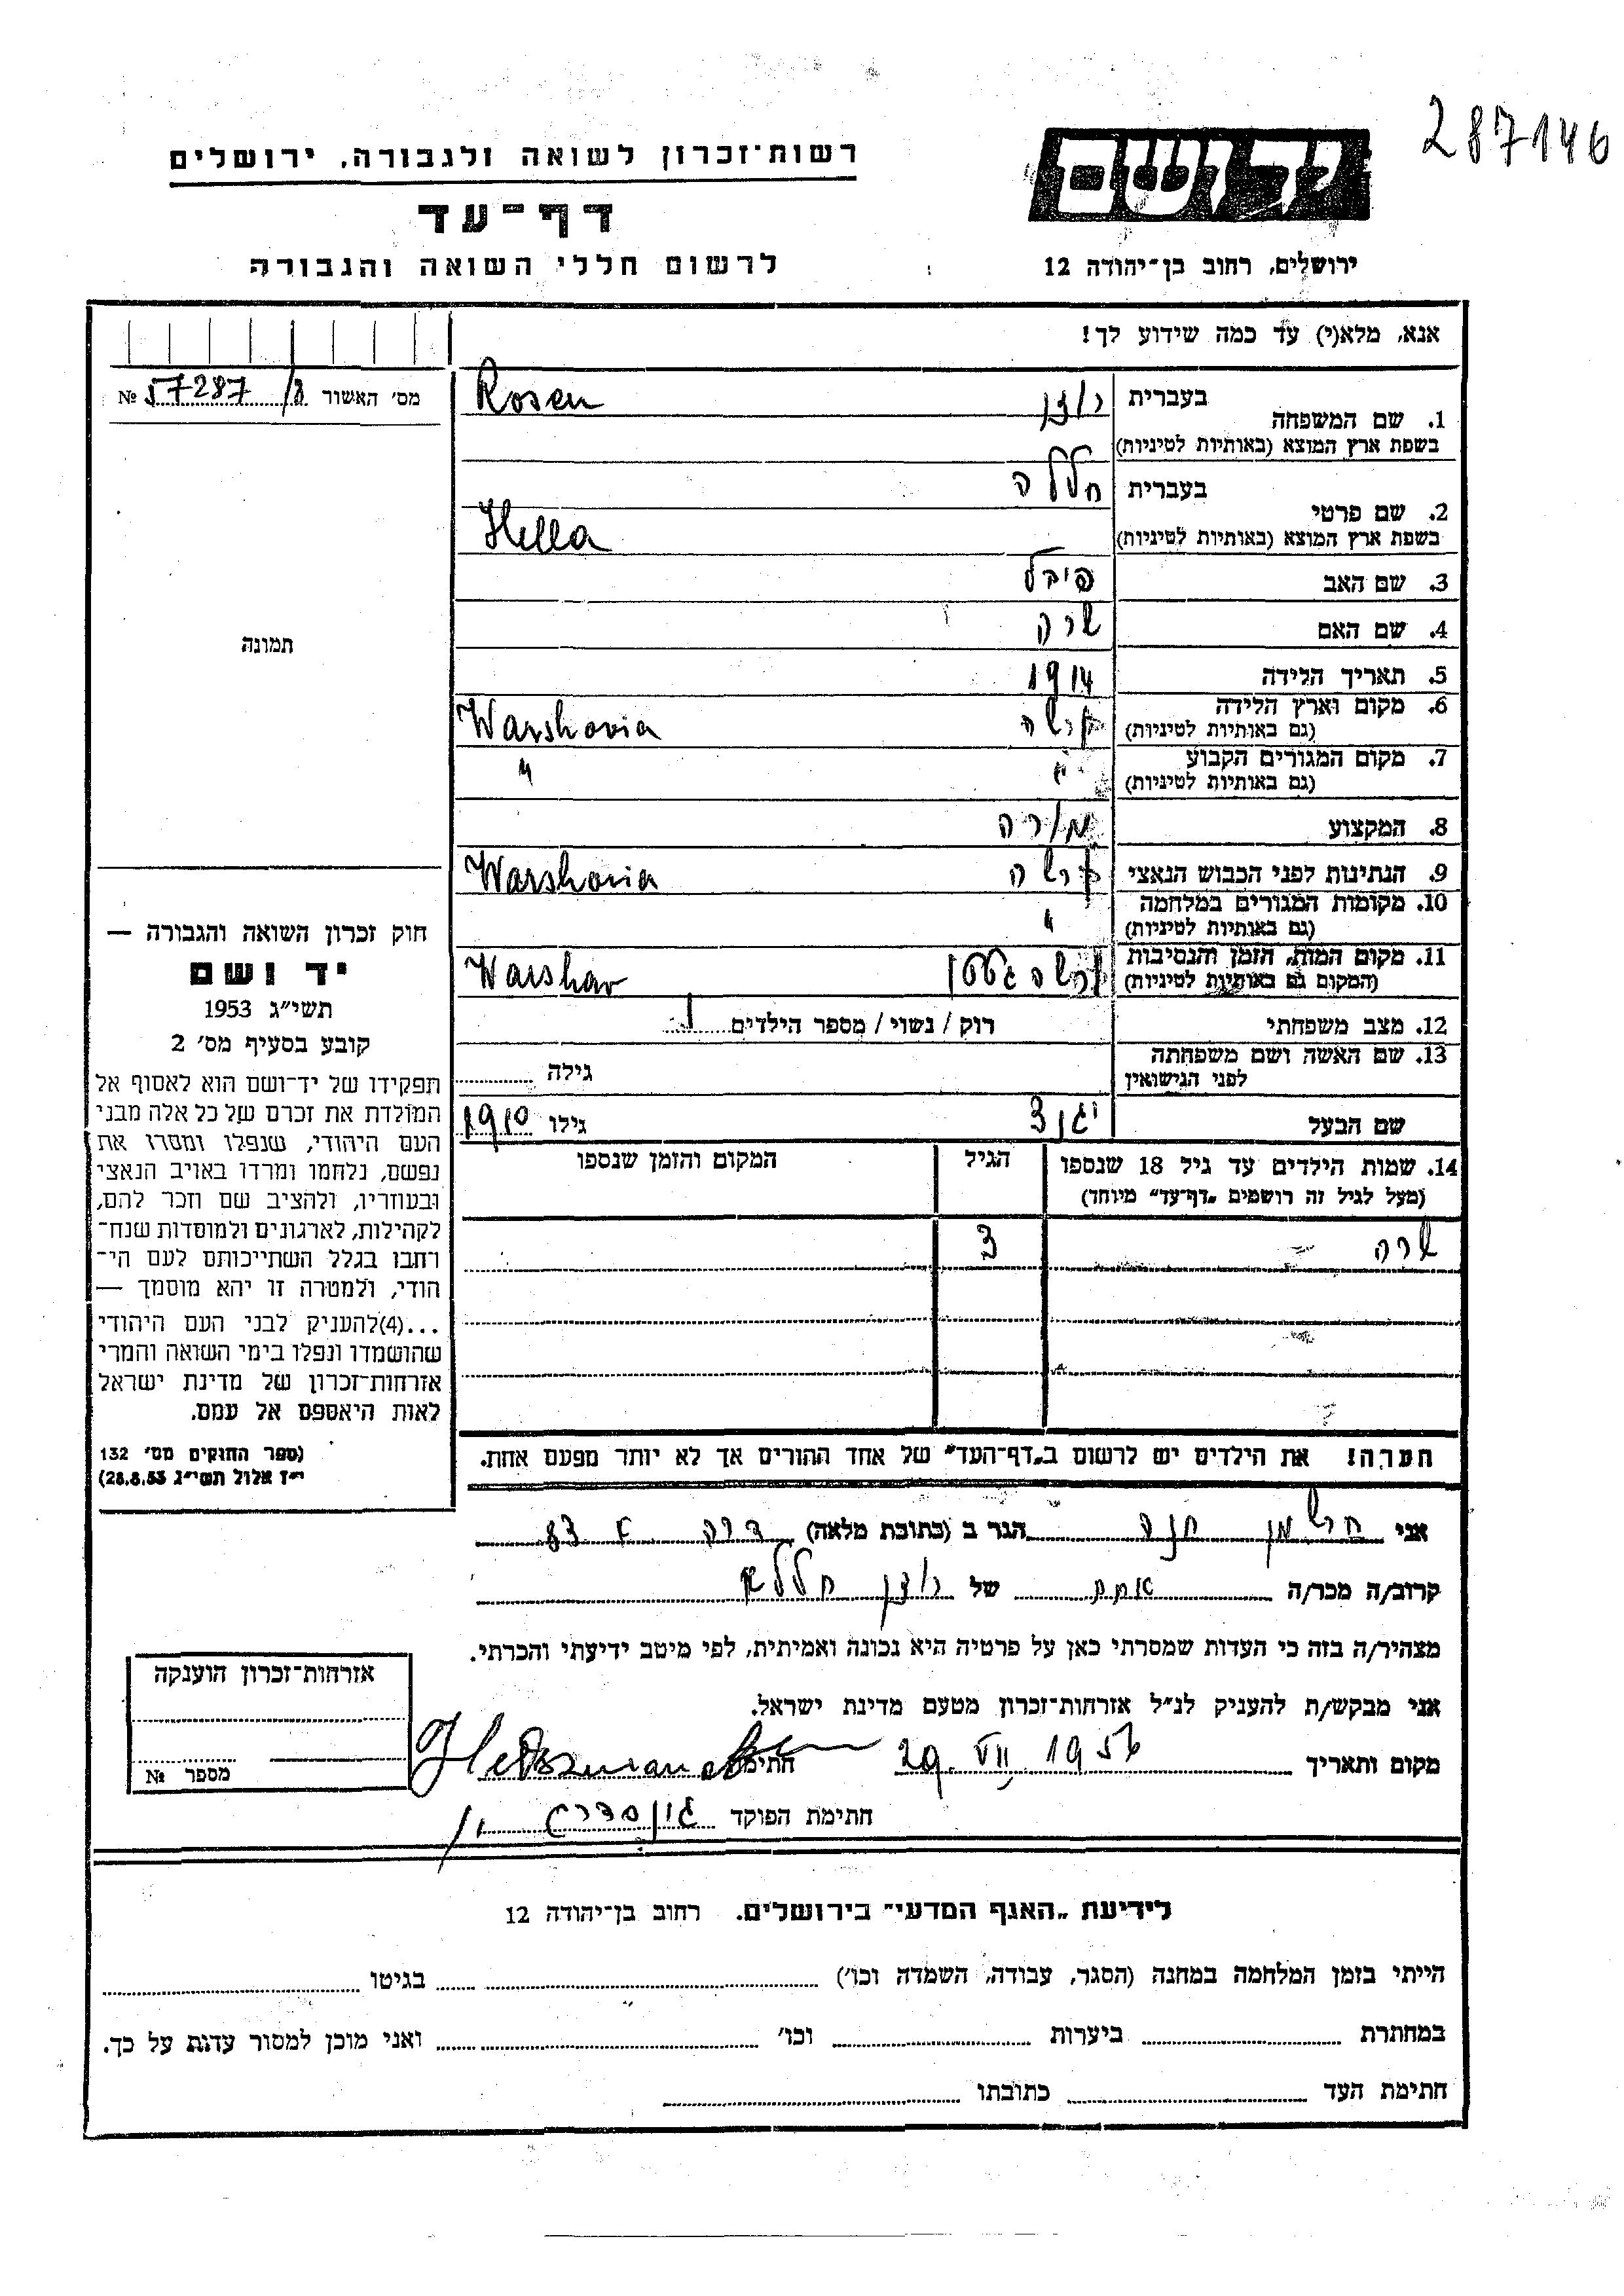 287146
ידושם
רשות־זכרון לשואה ולגבורה, ירושלים
דף־עד
ירושלים, רחוב בן־יהודה 12
לרשום חללי השואה והגבורה
אנא, מלא(י) עד כמה שידוע לך!
מס' האשור 57287/8 №
תמונה
1. שם המשפחה בעברית רוזן Rosen
בשפת ארץ המוצא (באותיות לטיניות)
2. שם פרטי בעברית חללה
בשפת ארץ המוצא (באותיות לטיניות) Hella
3. שם האב פיבל
4. שם האם שרה
5. תאריך הלידה 1914
6. מקום וארץ הלידה (גם באותיות לטיניות) ורשה Warshovia
7. מקום המגורים הקבוע (גם באותיות לטיניות) " "
8. המקצוע מורה
9. הנתינות לפני הכבוש הנאצי ורשה Warshovia
10. מקומות המגורים במלחמה (גם באותיות לטיניות) "
11. מקום המות, הזמן והנסיבות (המקום גם באותיות לטיניות) ורשה גטטו Warshav
12. מצב משפחתי רוק / נשוי / מספר הילדים 1
13. שם האשה ושם משפחתה לפני הנישואין גילה
שם הבעל גילו 1910
14. שמות הילדים עד גיל 18 שנספו הגיל המקום והזמן שנספו
(מעל לגיל זה רושמים „דף־עד” מיוחד)
שרה 3
הערה! את הילדים יש לרשום ב„דף־העד” של אחד ההורים אך לא יותר מפעם אחת.
חוק זכרון השואה והגבורה —
יד ושם
תשי״ג 1953
קובע בסעיף מס' 2
תפקידו של יד־ושם הוא לאסוף אל
המולדת את זכרם של כל אלה מבני
העם היהודי, שנפלו ומסרו את
נפשם, נלחמו ומרדו באויב הנאצי
ובעוזריו, ולהציב שם וזכר להם,
לקהילות, לארגונים ולמוסדות שנח־
רחבו בגלל השתייכותם לעם הי־
הודי, ולמטרה זו יהא מוסמך —
...(4)להעניק לבני העם היהודי
שהושמדו ונפלו בימי השואה והמרי
אזרחות־זכרון של מדינת ישראל
לאות היאספם אל עמם.
(ספר החוקים מס' 132
י״ז אלול תשי״ג 28.8.53)
אני הרשמן חנה הגר ב (כתובת מלאה) 83
קרוב/ה מכר/ה אחת של רוזן חללה
מצהיר/ה בזה כי העדות שמסרתי כאן על פרטיה היא נכונה ואמיתית, לפי מיטב ידיעתי והכרתי.
אני מבקש/ת להעניק לנ״ל אזרחות־זכרון מטעם מדינת ישראל.
מקום ותאריך 29. VII 1956 חתימה
חתימת הפוקד
אזרחות־זכרון הוענקה
מספר №
לידיעת „האגף המדעי” בירושלים. רחוב בן־יהודה 12
הייתי בזמן המלחמה במחנה (הסגר, עבודה, השמדה וכו') בגיטו
במחתרת ביערות וכו' ואני מוכן למסור עדות על כך.
חתימת העד כתובתו